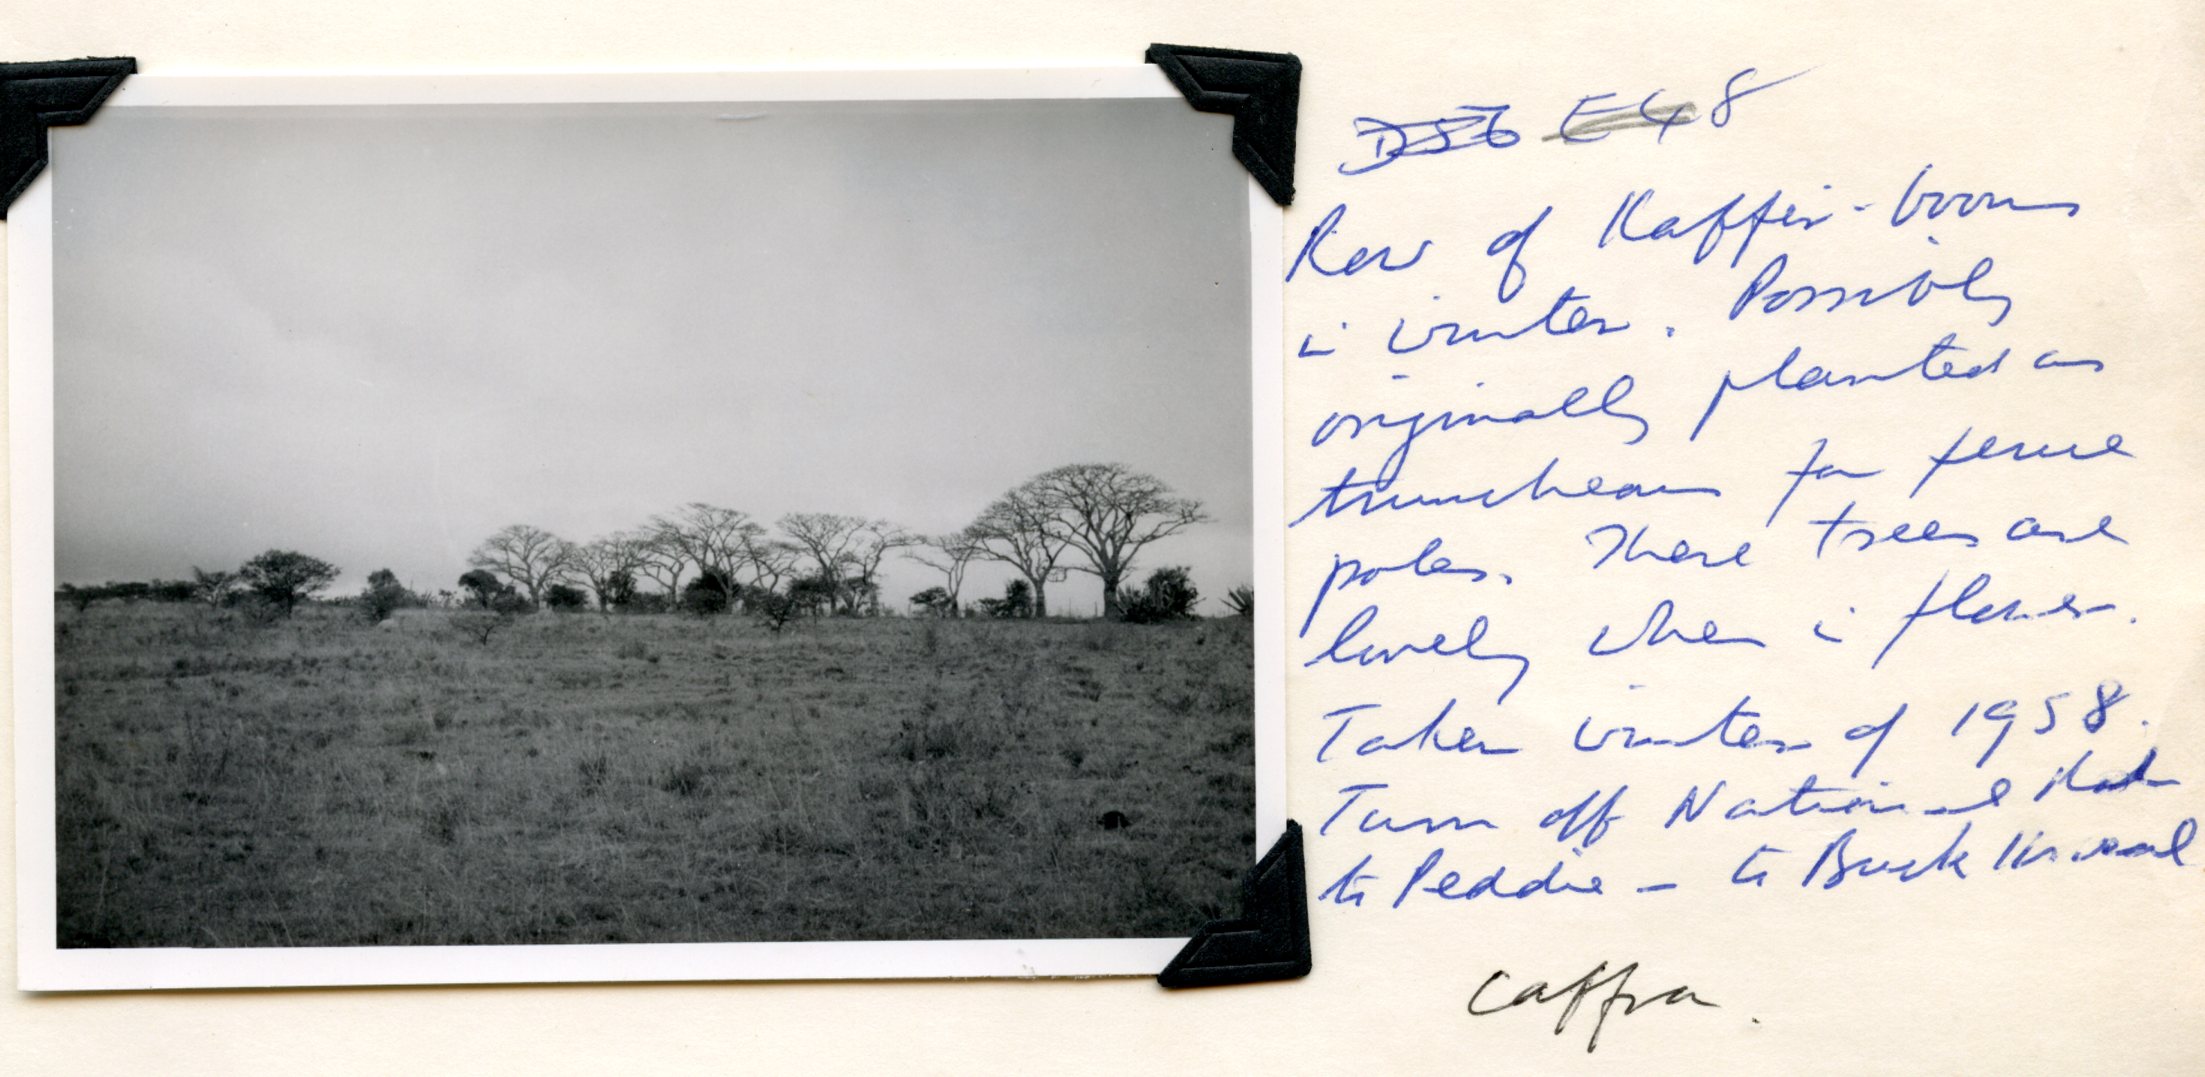 D56 E48
Row of Kaffir-booms
in winter. Possibly
originally planted as
truncheons for fence
poles. These trees are
lovely when in flower.
Taken winter of 1958.
Turn off National
to Peddie – to Buck Kraal
caffra.